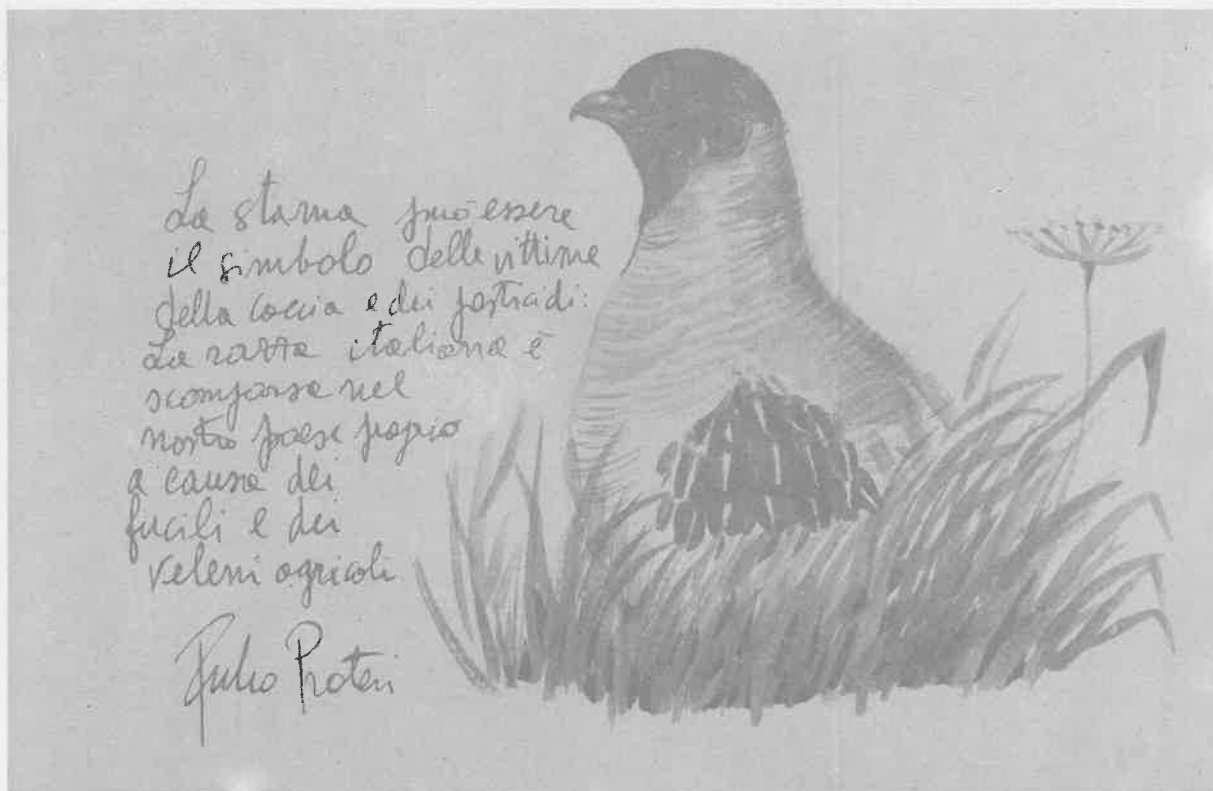 La starna può essere
il simbolo delle vittime
della caccia e dei pesticidi:
La razza italiana è
scomparsa nel
nostro paese proprio
a causa dei
fucili e dei
veleni agricoli
Fulco Pratesi